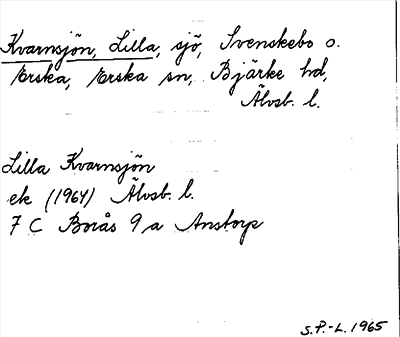 Kvarnsjön, Lilla, sjö, Svenskebo o.
Erska, Erska sn, Bjärke hd,
Älvsb. l.
Lilla Kvarnsjön
ek (1964) Älvsb. l.
7 C Borås 9 a Anstorp
S.P.-L. 1965